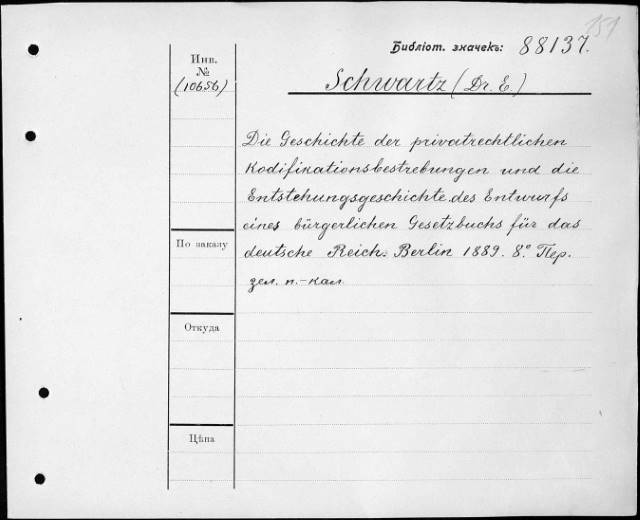 151
Библіот. значекъ: 88137.
Инв.
№
(10656)
Schwartz (Dr. E.)
Die Geschichte der privatrechtlichen
Kodifikationsbestrebungen und die
Entstehungsgeschichte des Entwurfs
eines bürgerlichen Gesetzbuchs für das
deutsche Reich. Berlin 1889. 8.° Пер.
зел. п.-кал.
По заказу
Откуда
Цѣна